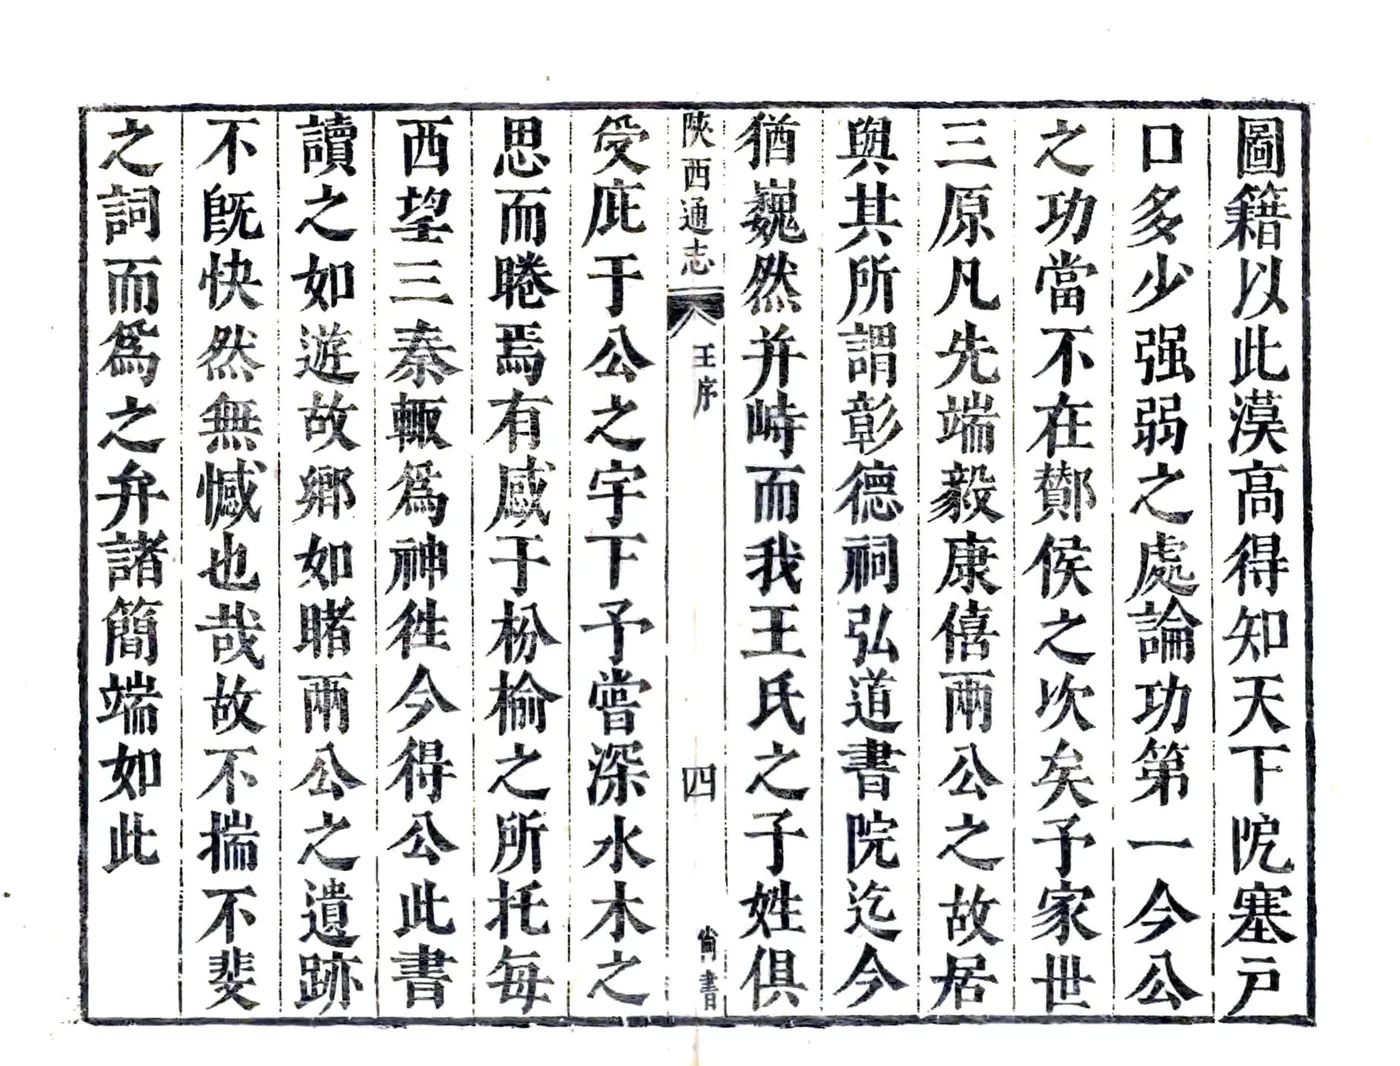 圖籍以此漢高得知天下阸塞戶
口多少强弱之處論功第一今公
之功當不在酇侯之次矣予家世
三原凡先端毅康僖兩公之故居
與其所謂彰德祠弘道書院迄今
猶巍然并峙而我王氏之子姓俱
陝西通志
王序
四
尙書
受庇于公之宇下予嘗深水木之
思而睠焉有感于枌榆之所托每
西望三秦輙爲神徃今得公此書
讀之如遊故鄉如睹兩公之遺跡
不旣快然無憾也哉故不揣不斐
之詞而爲之弁諸簡端如此